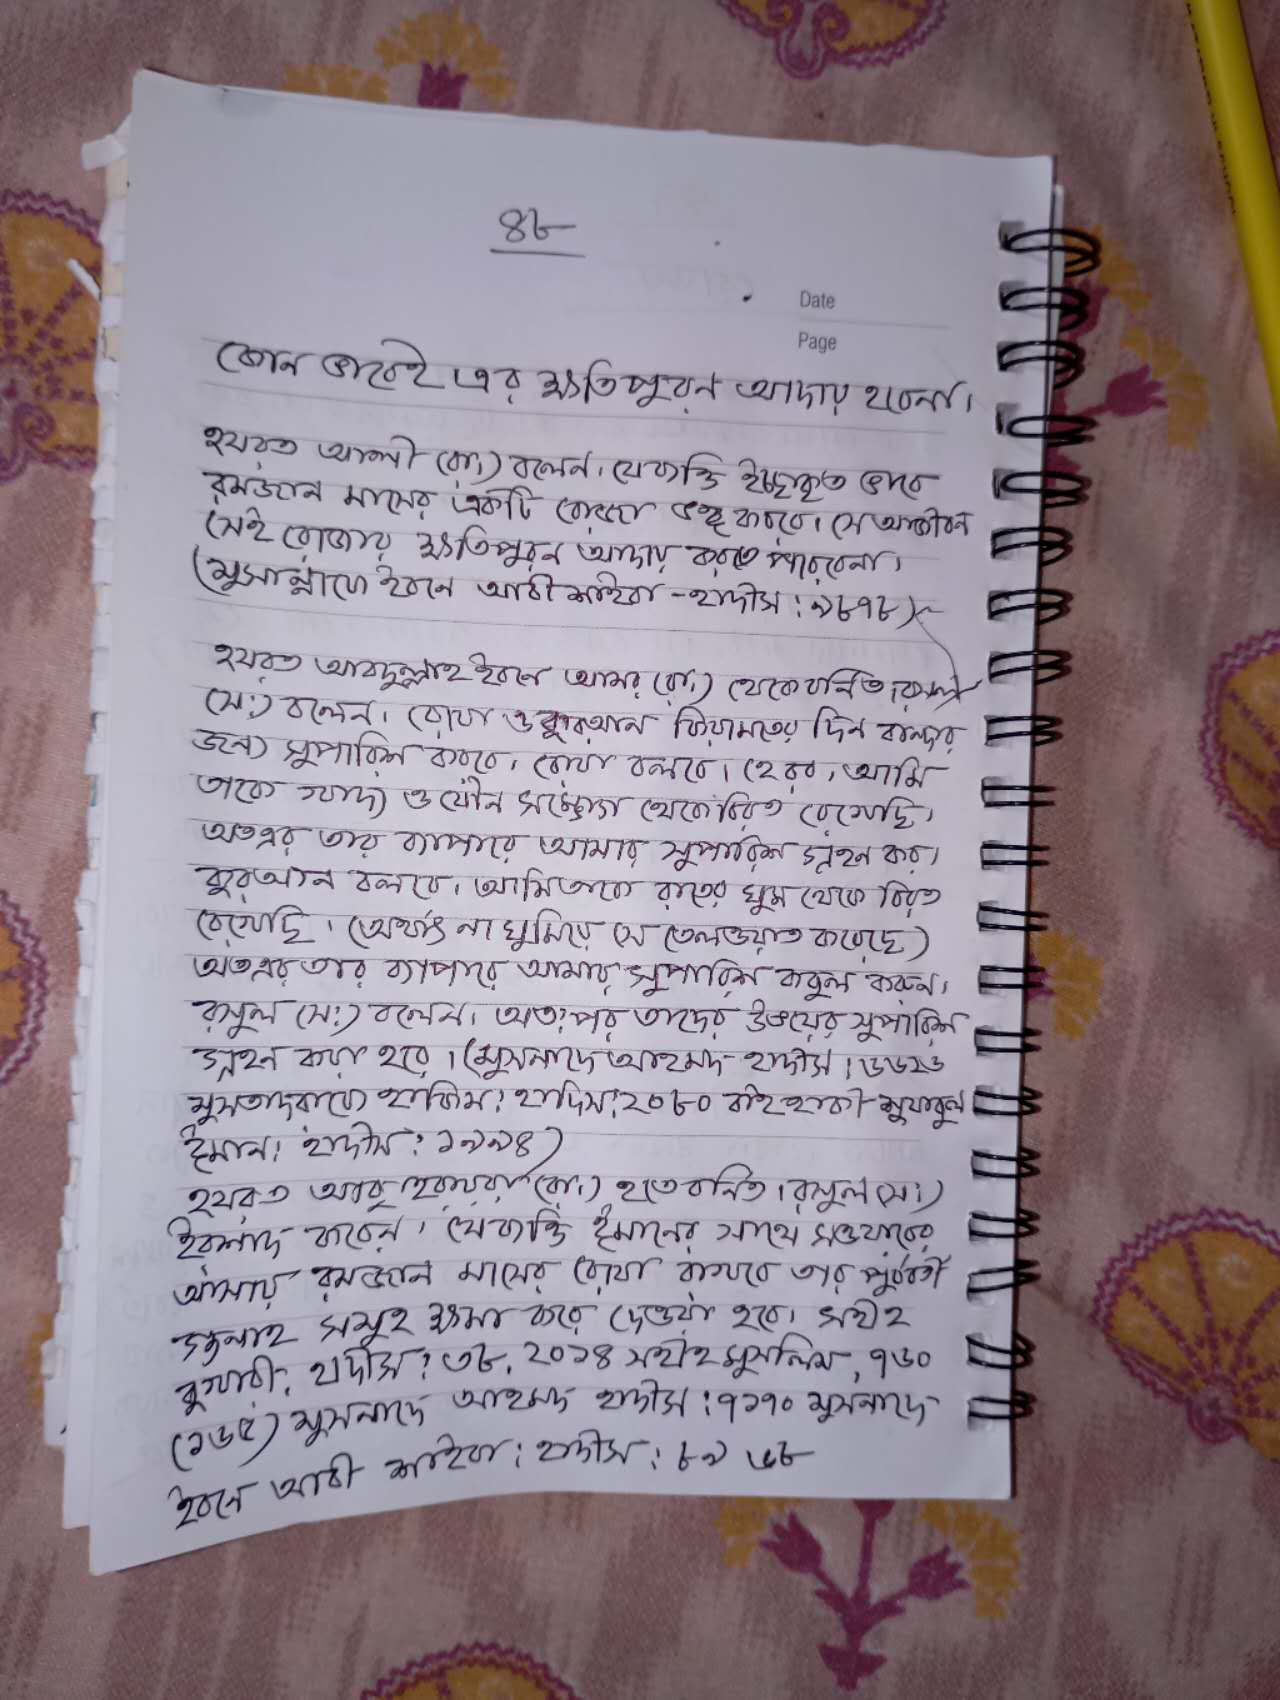 ৪৮
Date
Page
কোন ভাবেই এর ক্ষতিপুরন আদায় হবেনা।
হযরত আলী (রা:) বলেন। যেব্যক্তি ইচ্ছাকৃত ভাবে
রমজান মাসের একটি রোজা ভঙ্গ করবে। সে আজীবন
সেই রোজার ক্ষতিপুরন আদায় করতে পারবেনা।
(মুসান্নাফে ইবনে আবী শাইবা - হাদীস : ৯৮৭৮)
হযরত আবদুল্লাহ ইবনে আমর (রা:) থেকে বর্নিত। রসুল
(স:) বলেন। রোযা ও কুরআন কিয়ামতের দিন বান্দার
জন্য সুপারিশ করবে। রোযা বলবে। হে রব। আমি
তাকে খাদ্য ও যৌন সম্ভোগ থেকে বিরত রেখেছি।
অতএব তার ব্যাপারে আমার সুপারিশ গ্রহন কর।
কুরআন বলবে। আমি তাকে রাতের ঘুম থেকে বিরত
রেখেছি। (অর্থাৎ না ঘুমিয়ে সে তেলওয়াত করেছে)
অতএব তার ব্যাপারে আমার সুপারিশ কবুল করুন।
রসুল (স:) বলেন। অত:পর তাদের উভয়ের সুপারিশ
গ্রহন করা হবে। (মুসনাদে আহমদ হাদীস : ৬৬২৬
মুসতাদরাকে হাকিম : হাদিস : ২০৮০ বাইহাকী শুয়াবুল
ঈমান : হাদীস : ১৯৯৪)
হযরত আবু হুরায়রা (রা:) হতে বর্নিত। রসুল (স:)
ইরশাদ করেন। যেব্যক্তি ঈমানের সাথে সওয়াবের
আশায় রমজান মাসের রোযা রাখবে তার পূর্ববর্তী
গুনাহ সমুহ ক্ষমা করে দেওয়া হবে। সহীহ
বুখারী, হাদীস : ৩৮, ২০১৪ সহীহ মুসলিম, ৭৬০
(১৬৫) মুসনাদে আহমদ হাদীস : ৭১৭০ মুসনাদে
ইবনে আবী শাইবা : হাদীস : ৮৯ ৬৮